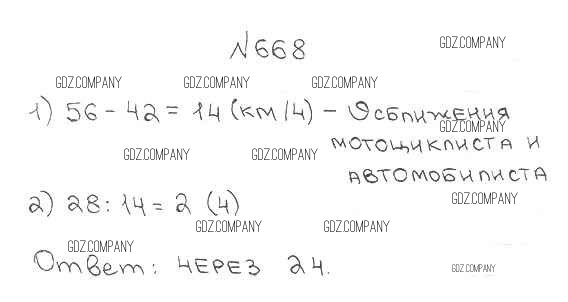 №668
GDZ.COMPANY
GDZ.COMPANY GDZ.COMPANY GDZ.COMPANY
1) 56 - 42 = 14 (км/ч) - υ сближения
GDZ.COMPANY
мотоциклиста и
GDZ.COMPANY GDZ.COMPANY
автомобилиста
2) 28 : 14 = 2 (ч)
GDZ.COMPANY
GDZ.COMPANY GDZ.COMPANY
GDZ.COMPANY
Ответ: через 2ч.
GDZ.COMPANY